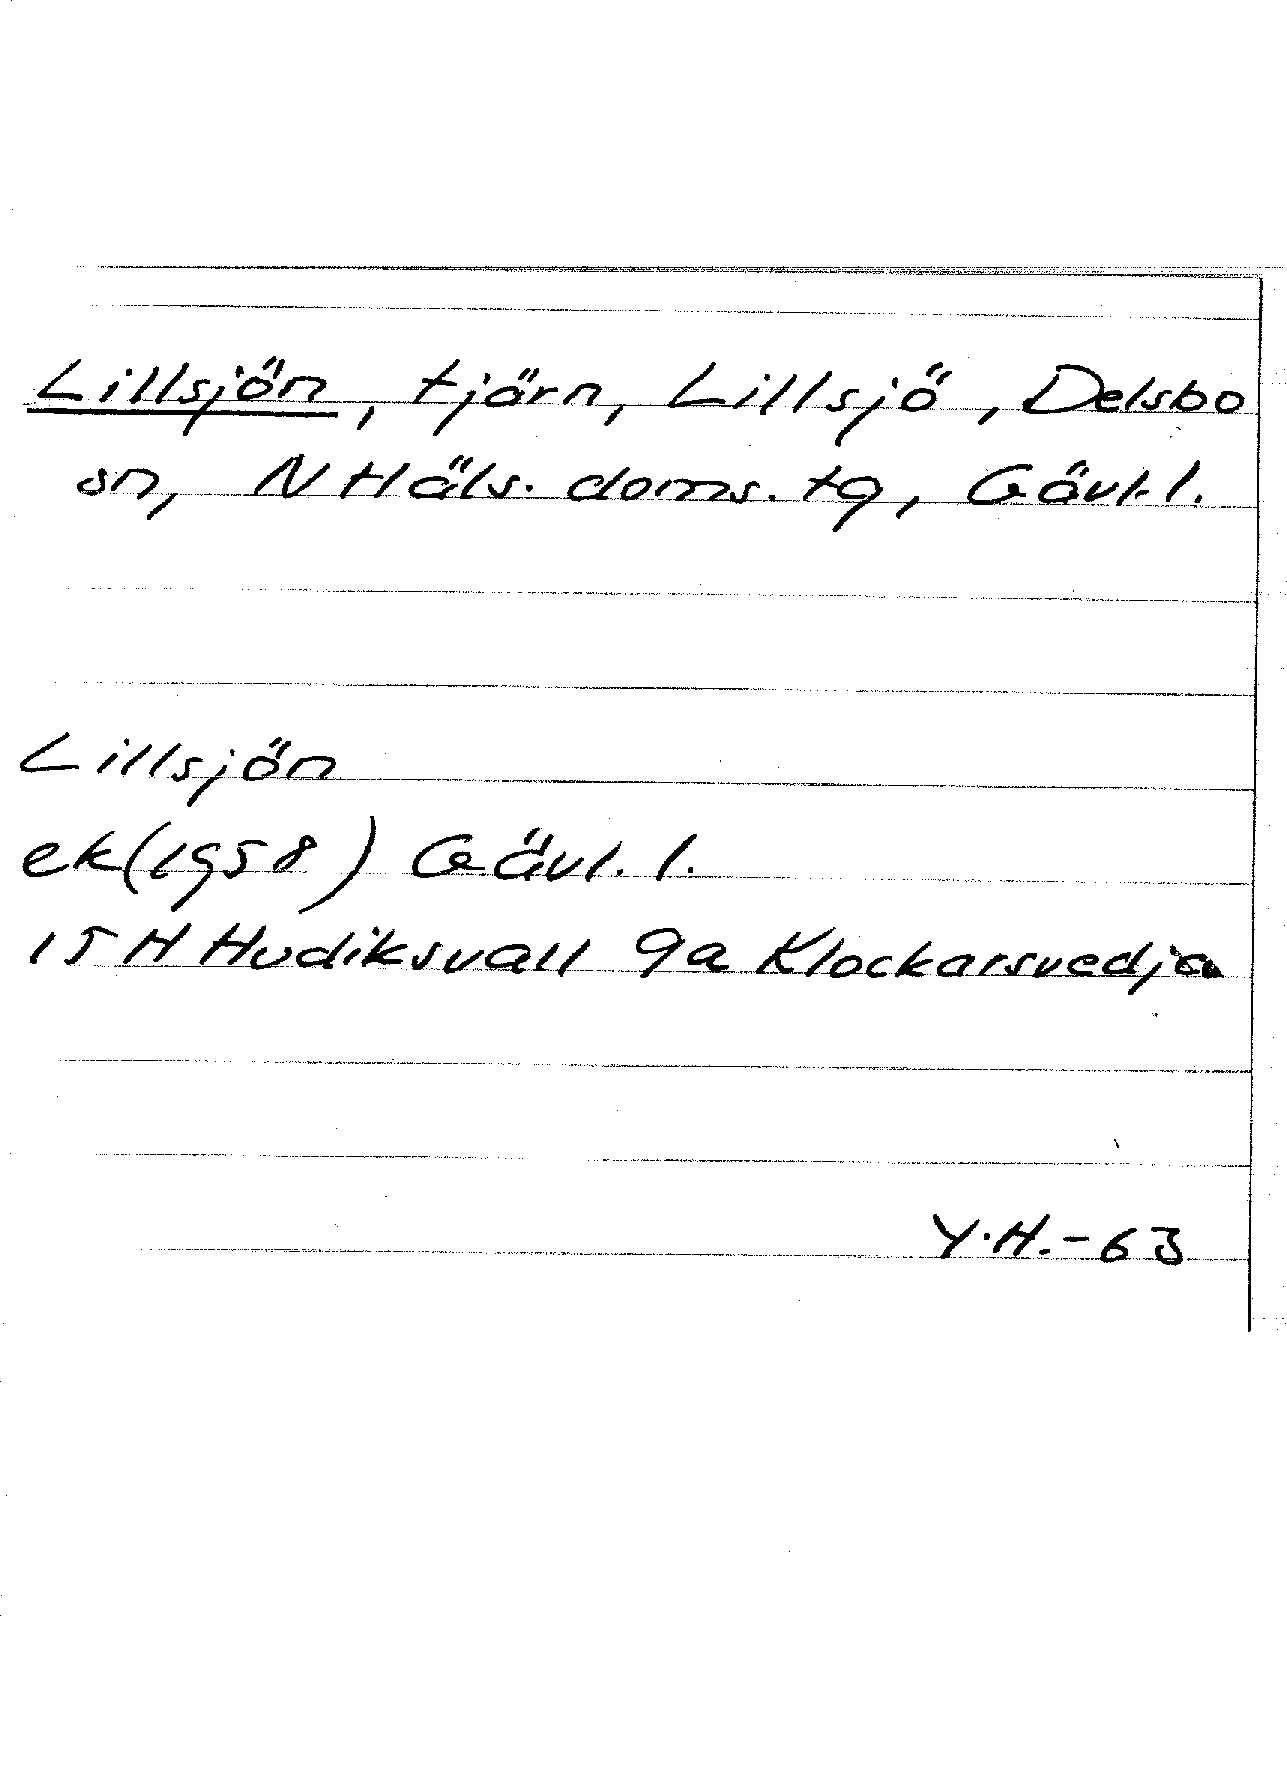 Lillsjön, tjärn, Lillsjö, Delsbo
sn, N Häls. doms. tg, Gävl. l.
Lillsjön
ek (1958) Gävl. l.
15 H Hudiksvall 9a Klockarsvedja
Y.H. - 63